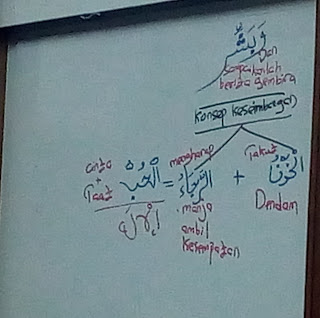 وَبَشِّرْ
Dan
sampaikanlah
berita gembira
Konsep Keseimbangan
cinta + Taat
الْحُبُّ
=
mengharap
الرَّجَاءُ
+
Takut
الْخَوْفُ
manja
ambil
kesempatan
Dendam